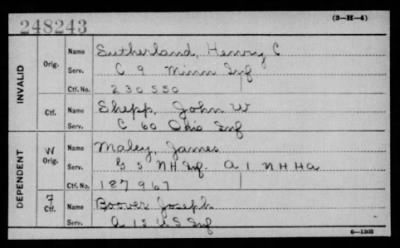 248243
(3-H-4)
INVALID
Orig.
Name Sutherland, Henry C
Serv. C 9 Minn Inf
Ctf. No. 230550
Ctf.
Name Shepp, John W
Serv. C 60 Ohio Inf
DEPENDENT
W
Orig.
Name Maley, James
Serv. G 5 NH Inf. A 1 N H Ha
Ctf. No. 187967
Ctf.
Name Boover Joseph
Serv. 15 US Inf